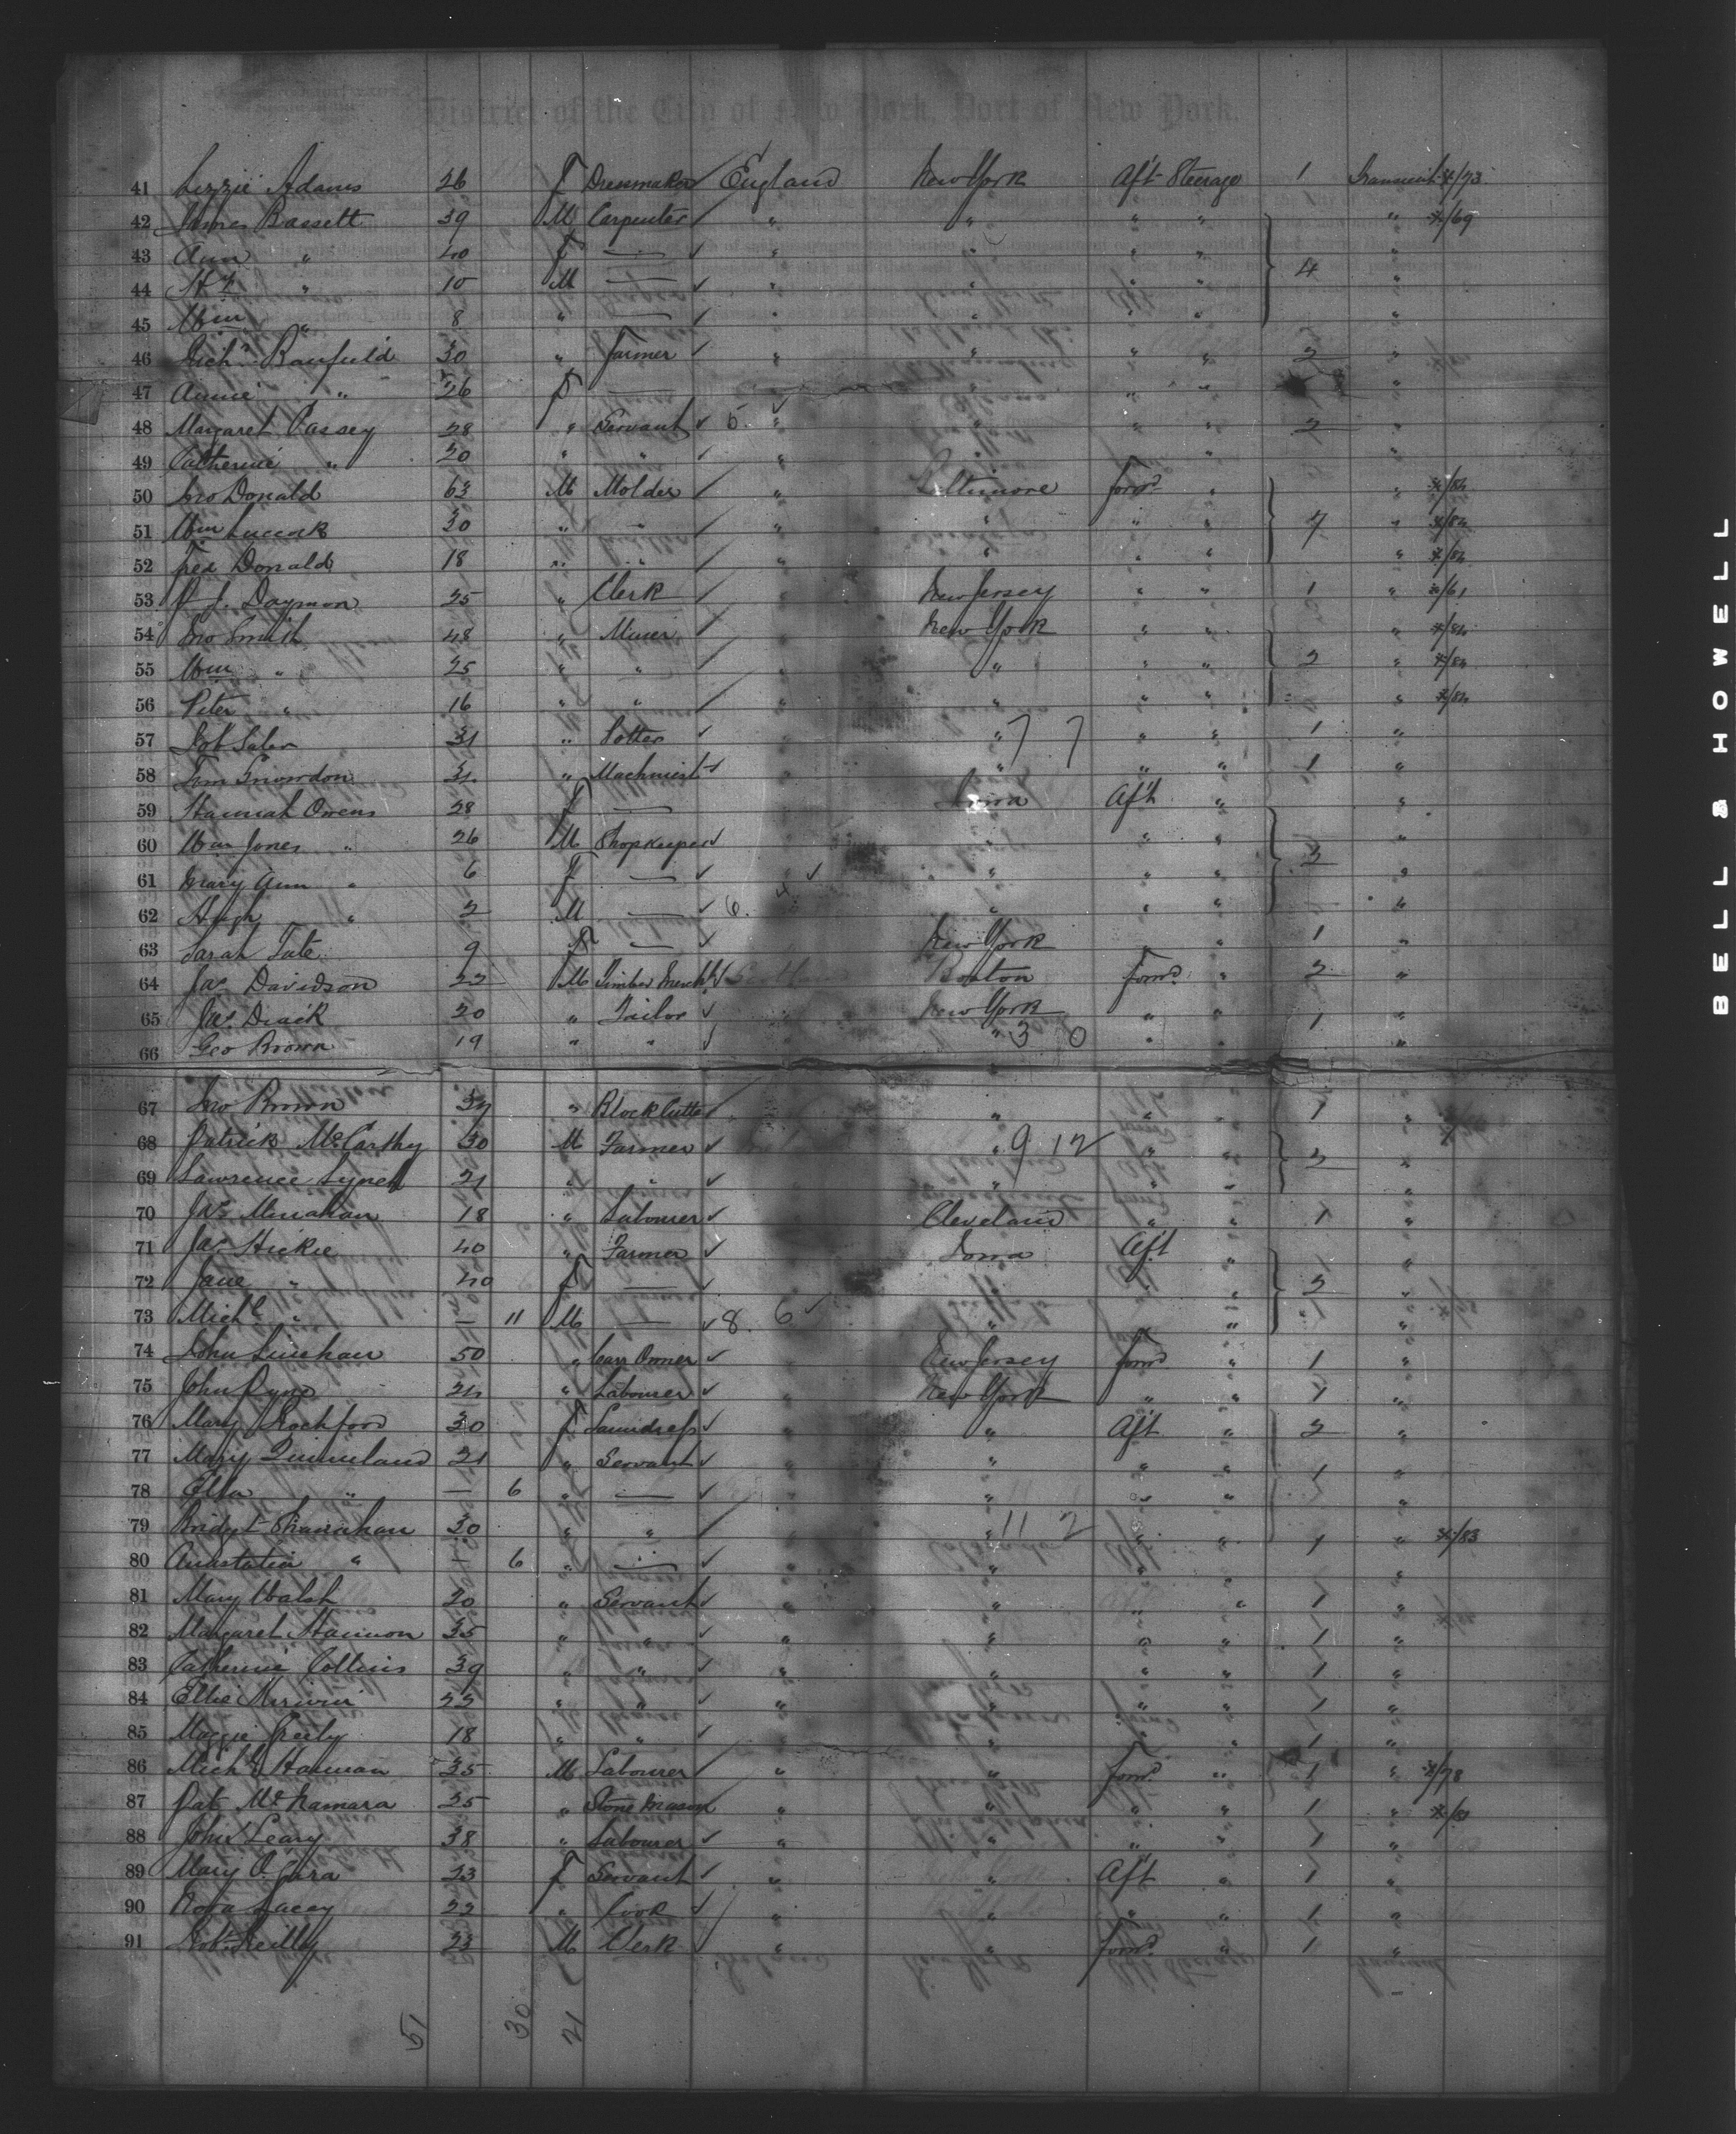 District of the City of New York, Port of New York.
41 Lizzie Adams 26 F Dressmaker England New York Aft Steerage 1 Transient */73
42 James Bassett 39 M Carpenter " " " " " */69
43 Ann " 40 F — " " " " "
44 Hy " 10 M — " " " " 4 "
45 Wm " 8 " — " " " " "
46 Richd Banfield 30 " Farmer " " " " 2 "
47 Annie " 26 F — " " " "
48 Margaret Passey 28 " Servant 5 " " " " 2 "
49 Catherine " 20 " " " " "
50 Geo Donald 63 M Molder " Baltimore Forwd " " */84
51 Wm Luccock 30 " " " " " " " */84
52 Fred Donald 18 " " " " " " " */84
53 P. J. Daymon 25 " Clerk New Jersey " " 1 " */61
54 Jno Smith 48 " Miner New York " " " */84
55 Wm " 25 " " " " " 2 " */84
56 Peter " 16 " " " " " " */84
57 31 " Potter " 7 7 " " 1 "
58 Snowdon " Machinist " " " 1 "
59 Hannah Owens 28 F — Iowa Aft " "
60 Wm Jones " 26 M Shopkeeper " " " 3 "
61 Mary Ann " 6 F — " " " "
62 Hugh " 2 M — 6. " " " "
63 Sarah Tate 9 F — New York " " 1 "
64 Jas Davidson 22 M Timber Mercht Boston Forwd " 2 "
65 Jas Diack 20 " Tailor New York " " 1 "
66 Geo Brown 19 " " " 3 0 " " "
67 Jno Brown " Block Cutter " " " 1 "
68 Patrick McCarthy 30 M Farmer " 9 12 " " 2 "
69 Lawrence Lynch 21 " " " " " "
70 Jas Minahan 18 " Labourer Cleveland " " 1 "
71 Jas Hickie 40 " Farmer Iowa Aft " "
72 Jane " 40 F — " " 2 "
73 Michl " — 11 M — 8. 6 " " "
74 John Linehan 50 " Carr Owner New Jersey Forwd " 1 "
75 John Ryng 24 " Labourer New York " " 1 "
76 Mary Rochford 30 F Laundress " Aft " 2 "
77 Mary Quineland 21 " Servant " " " 1 "
78 Ella " — 6 " — " " " "
79 Bridget Shanahan 30 " " " 11 2 " " 1 " */83
80 Anastatia " — 6 " — " " "
81 Mary Walsh 20 " Servant " " " " 1 "
82 Margaret Hannon 35 " " " " " " 1 "
83 Catherine Collins 39 " " " " " " 1 "
84 Ellie 22 " " " " " " 1 "
85 Maggie Greely 18 " " " " " 1 "
86 Michl Hannan 35 M Labourer " " Forwd " 1 " */78
87 Pat McNamara 25 " Stone Mason " " " " 1 " */81
88 John Leary 38 " Labourer " " " " 1 "
89 Mary O'Gara 23 F Servant " " Aft " 1 "
90 Nora Lacey 22 " Cook " " " " 1 "
91 Robt Reilly 23 M Clerk " " Forwd " 1 "
51 30 21
BELL & HOWELL